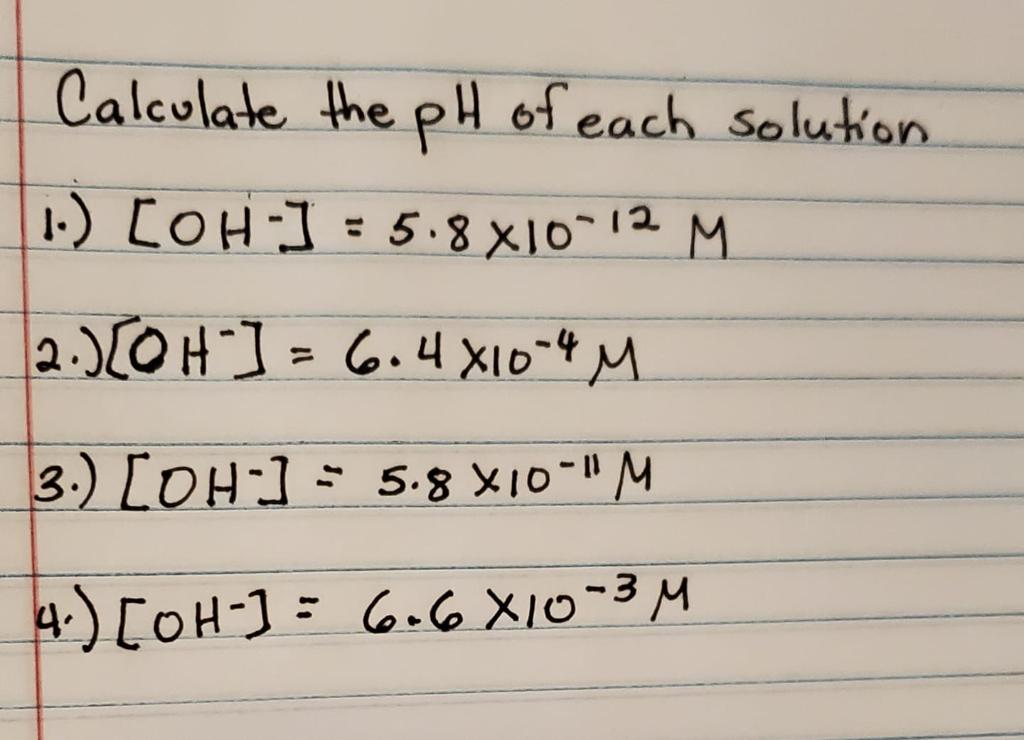 Calculate the pH of each solution
1.) [OH-] = 5.8 X10-12 M
2.) [OH-] = 6.4 X10-4 M
3.) [OH-] = 5.8 X10-11 M
4.) [OH-] = 6.6 X10-3 M